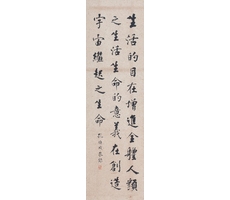 生活的目在增進全體人類
之生活生命的意義在創造
宇宙繼起之生命